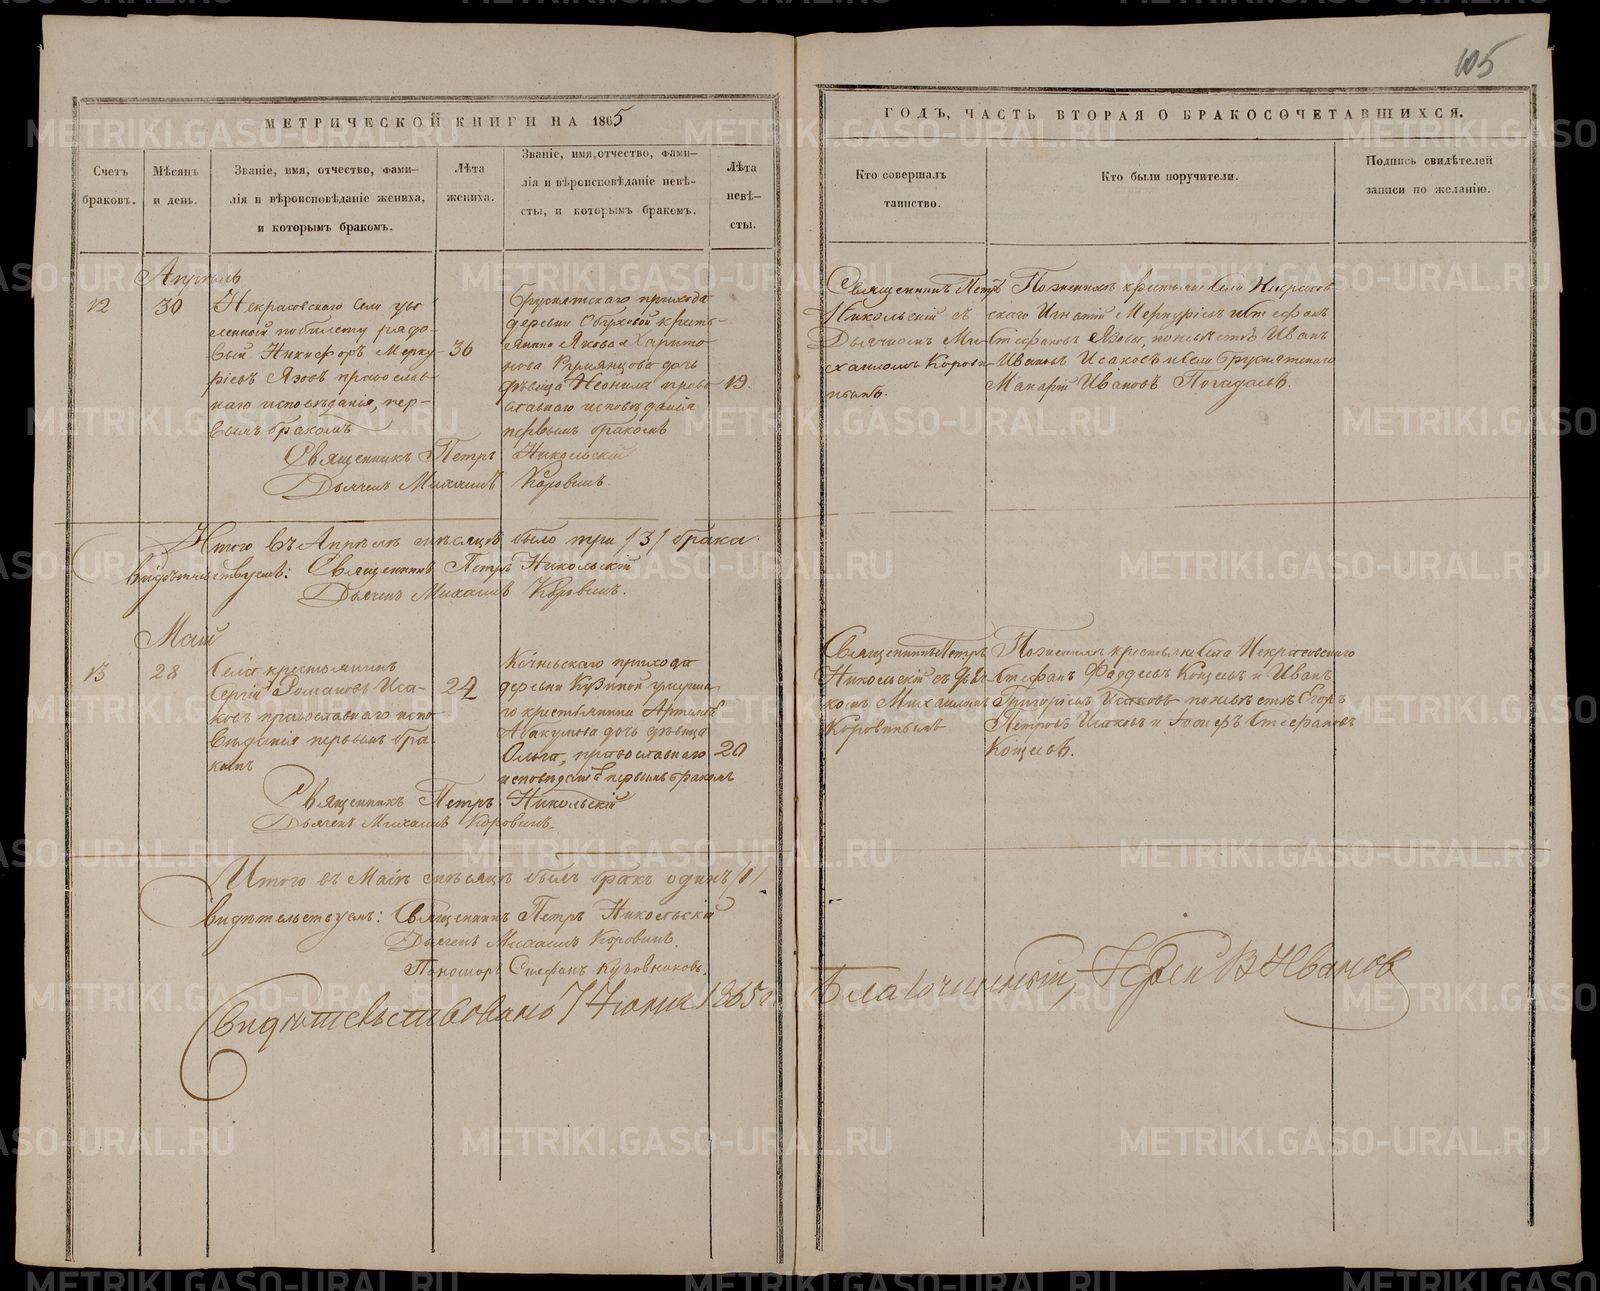 105
МЕТРИЧЕСКОЙ КНИГИ НА 1865
ГОДЪ, ЧАСТЬ ВТОРАЯ О БРАКОСОЧЕТАВШИХСЯ.
Счетъ
браковъ.
Мѣсяцъ
и день.
Званіе, имя, отчество, фами-
лія и вѣроисповѣданіе жениха,
и которымъ бракомъ.
Лѣта
жениха.
Званіе, имя, отчество, фами-
лія и вѣроисповѣданіе невѣ-
сты, и которымъ бракомъ.
Лѣта
невѣ-
сты.
Кто совершалъ
таинство.
Кто были поручители.
Подпись свидѣтелей
записи по желанію.
Апрѣль
12
30
Некрасовскаго Села уво
ленный по билету рядо-
вый Никифоръ Мерку-
ріевъ Язовъ православ-
наго исповѣданія, пер-
вымъ бракомъ
36
Бруснятскаго прихода
деревни Обуховой кресть-
янина Якова Харито-
нова Румянцова дочь
дѣвица Неонила право
славнаго исповѣданія
первымъ бракомъ
19.
Священникъ Петръ
Никольскій съ
Дьячкомъ Ми-
хаиломъ Корови-
нымъ.
По женихѣ крестьяне Села Некрасов
скаго Игнатій Меркуріевъ и Стефанъ
Стефановъ Язовы, по невѣстѣ Иванъ
Ивановъ Исаковъ и Села Бруснятскаго
Макарій Ивановъ Погадаевъ.
Священникъ Петръ Никольскій
Дьячекъ Михаилъ Коровинъ.
Итого въ Апрѣлѣ мѣсяцѣ было три /3/ брака.
Свидѣтельствуемъ: Священникъ Петръ Никольскій
Дьячекъ Михаилъ Коровинъ.
Май
13
28
Села крестьянинъ
Сергій Романовъ Иса-
ковъ православнаго испо
вѣданія первымъ бра-
комъ
22
Кочневскаго прихода
деревни Кузиной умерша-
го крестьянина Артемія
Абакумова дочь дѣвица
Ольга, православнаго
исповѣданія первымъ бракомъ
20
Священникъ Петръ
Никольскій съ Дьяч-
комъ Михаиломъ
Коровинымъ
По женихѣ крестьяне Села Некрасовскаго
Стефанъ Фаддеевъ Кощеевъ и Иванъ
Григорьевъ Исаковъ по невѣстѣ Егоръ
Петровъ Исаковъ и Іосифъ Стефановъ
Кощеевъ.
Священникъ Петръ Никольскій
Дьячекъ Михаилъ Коровинъ.
Итого въ Маѣ мѣсяцѣ былъ бракъ одинъ /1/
Свидѣтельствуемъ: Священникъ Петръ Никольскій
Дьячекъ Михаилъ Коровинъ.
Пономарь Стефанъ Кузовниковъ.
Свидѣтельствовано 7 Іюня 1865 г. Благочинный, Іерей В Ивановъ
METRIKI.GASO-URAL.RU